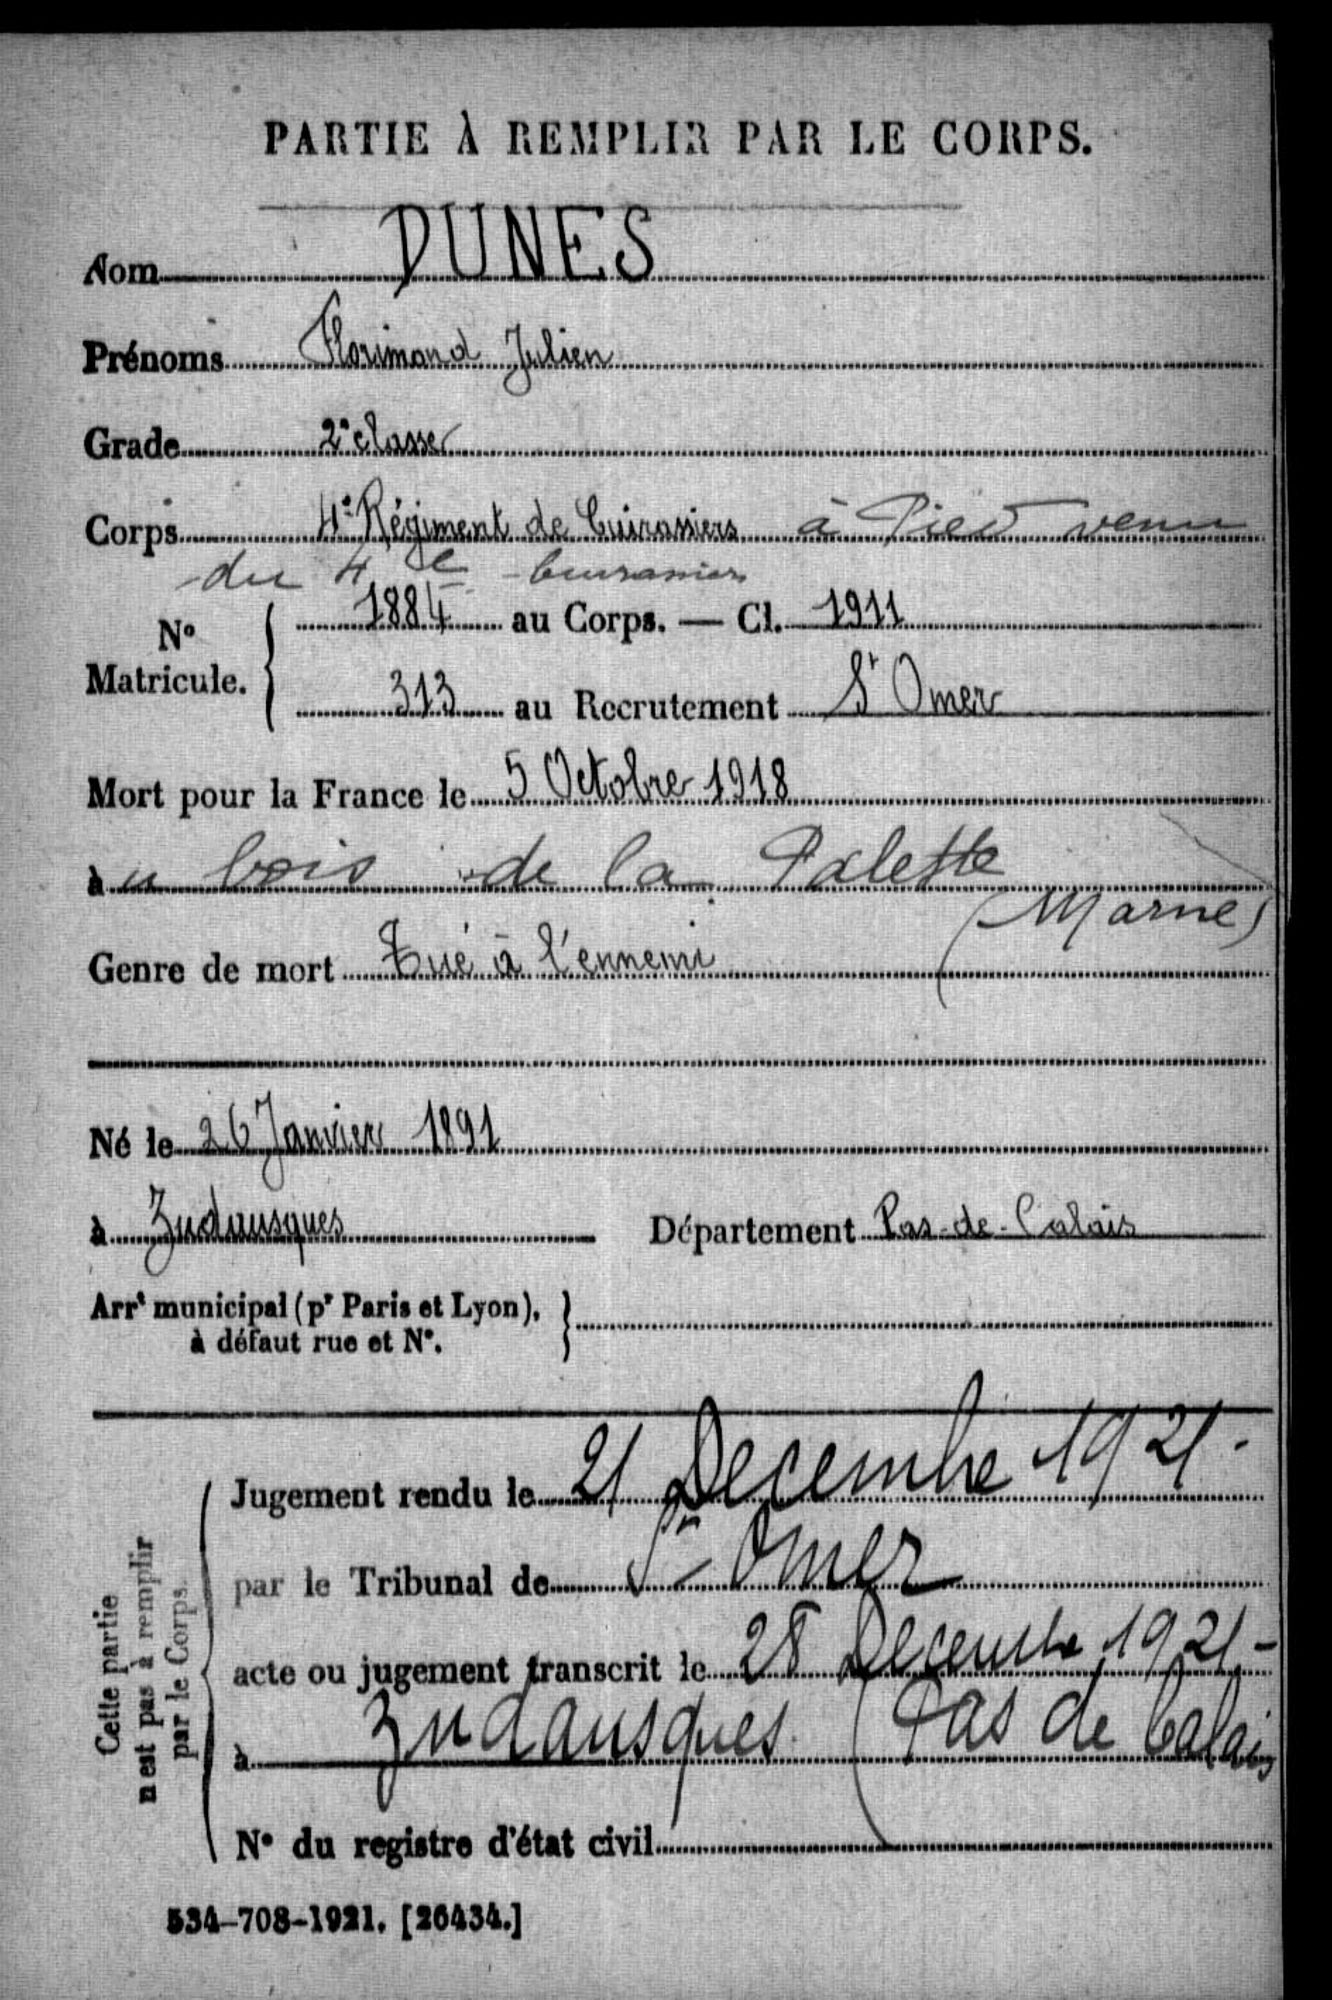 PARTIE À REMPLIR PAR LE CORPS.
Nom DUNES
Prénoms Florimond Julien
Grade 2e classe
Corps 4e Régiment de Cuirassiers à Pied venu
du 4e cuirassiers
No Matricule. 1884 au Corps. — Cl. 1911
313 au Recrutement St Omer
Mort pour la France le 5 Octobre 1918
àu bois de la Palette
(Marne)
Genre de mort Tué à l'ennemi
Né le 26 Janvier 1891
à Zudausques Département Pas-de-Calais
Arrt municipal (pr Paris et Lyon),
à défaut rue et No.
Cette partie
n'est pas à remplir
par le Corps.
Jugement rendu le 21 Decembre 1921-
par le Tribunal de St Omer
acte ou jugement transcrit le 28 Decembre 1921-
à Zudausques (Pas de Calais
No du registre d'état civil
534-708-1921. [26434.]